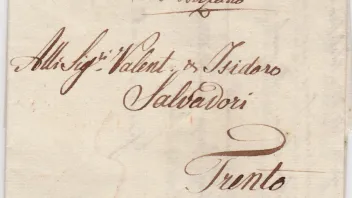 Alli Sig.ri Valent. & Isidoro
Salvadori
Trento